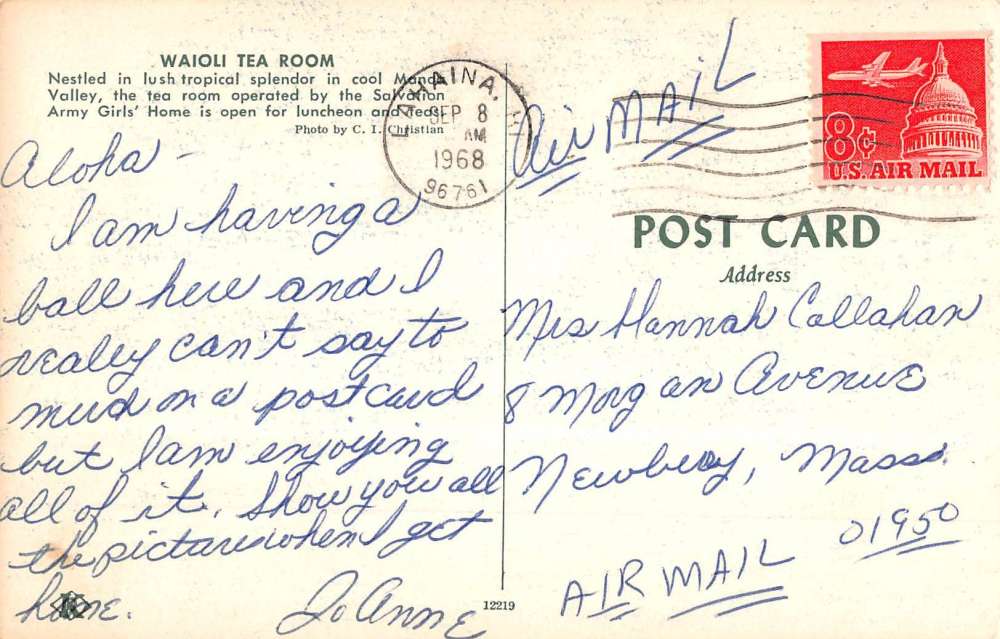 WAIOLI TEA ROOM
Nestled in lush tropical splendor in cool Manoa
Valley, the tea room operated by the Salvation
Army Girls' Home is open for luncheon and teas.
Photo by C. I. Christian
Aloha —
I am having a
ball here and I
really can't say to
much on a postcard
but I am enjoying
all of it. Show you all
the pictures when I get
home.
Jo Anne
12219
LAHAINA, HI
SEP 8
AM
1968
96761
Air MAIL
8¢
U.S. AIR MAIL
POST CARD
Address
Mrs Hannah Callahan
8 Morgan Avenue
Newbury, Mass.
01950
AIR MAIL